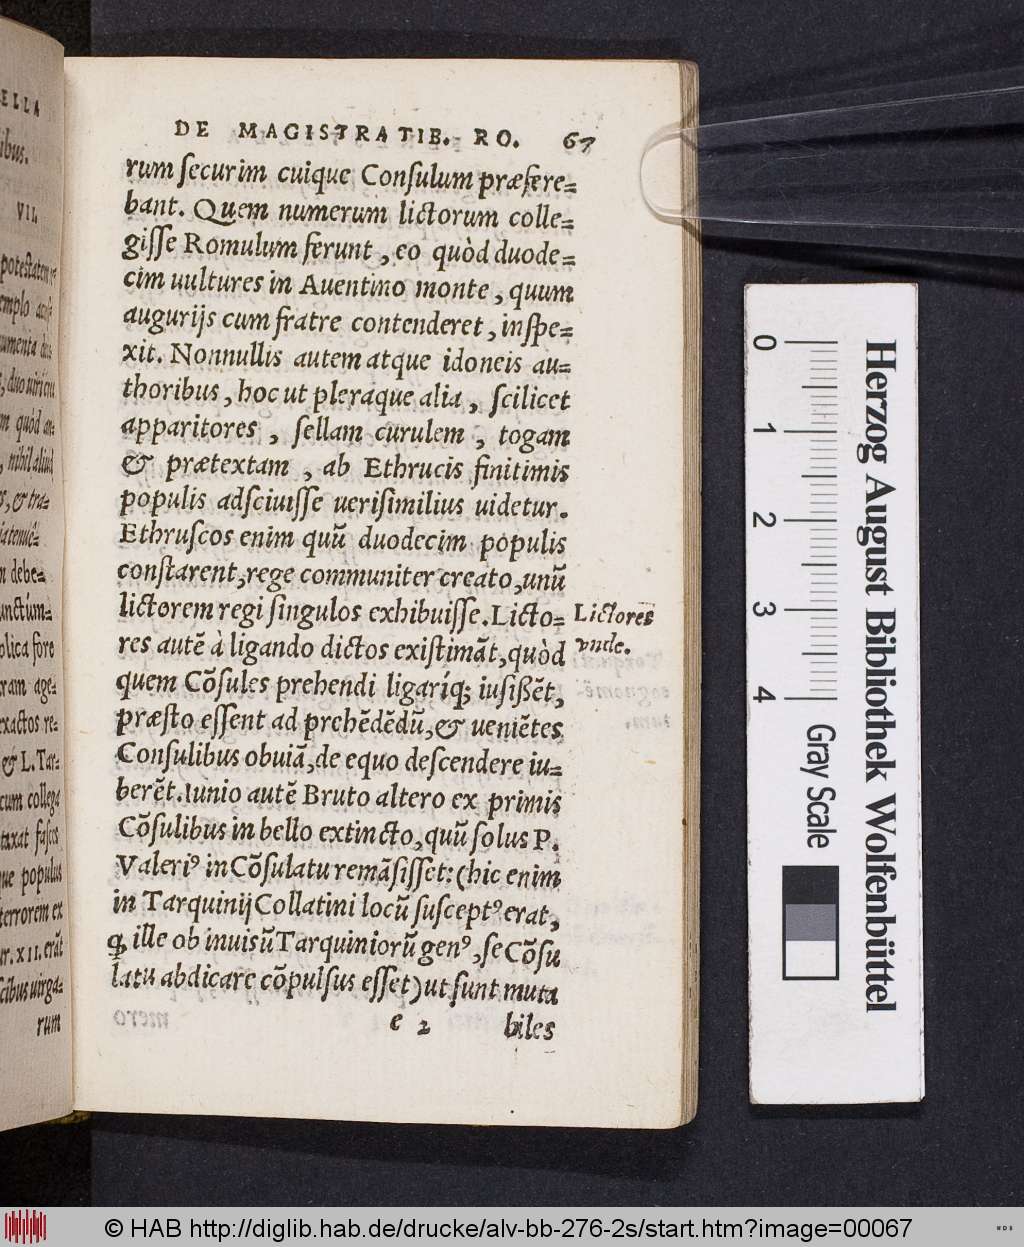 ELLA
ibus.
VII.
DE MAGISTRATIB. RO. 67
rum ſecurim cuique Conſulum præfere=
bant. Quem numerum lictorum colle=
giſſe Romulum ferunt, eo quòd duode=
cim uultures in Auentino monte, quum
augurijs cum fratre contenderet, inſpe=
xit. Nonnullis autem atque idoneis au=
thoribus, hoc ut pleraque alia, ſcilicet
apparitores, ſellam curulem, togam
& prætextam, ab Ethrucis finitimis
populis adſciuiſſe ueriſimilius uidetur.
Ethruſcos enim quũ duodecim populis
conſtarent, rege communiter creato, unũ
lictorem regi ſingulos exhibuiſſe. Licto=
res autẽ à ligando dictos exiſtimãt, quòd
quem Cõſules prehendi ligaríq; iuſißẽt,
præſto eſſent ad prehẽdẽdũ, & ueniẽtes
Conſulibus obuiã, de equo deſcendere iu=
berẽt. Iunio autẽ Bruto altero ex primis
Cõſulibus in bello extincto, quũ ſolus P.
Valeriꝰ in Cõſulatu remãſiſſet: (hic enim
in Tarquinij Collatini locũ ſuſceptꝰ erat,
ꝙ ille ob inuisũ Tarquiniorũ genꝰ, ſe Cõſu
latu abdicare cõpulſus eſſet) ut ſunt muta
e 2 biles
Lictores
vnde.
potestatem
, duo
m quòd an=
, nihil aliud
s, & tra=
n debe=
unctum=
olica fore
ram age=
exactos re=
& L. Tar=
cum collega
taxat faſces
ue populus
terrorem ex
ur. XII. erãt
ſcibus uirga=
rum
0
1
2
3
4
Gray Scale
Herzog August Bibliothek Wolfenbüttel
© HAB http://diglib.hab.de/drucke/alv-bb-276-2s/start.htm?image=00067
WDB